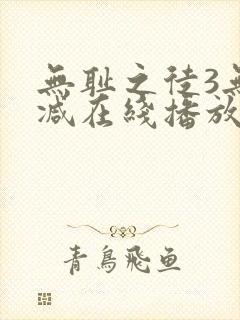 無耻之徒3無
减在綫播放
青鳥飛魚